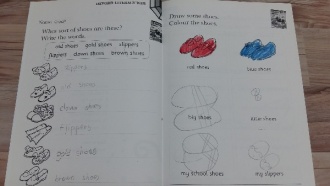 What sort of shoes are these?
Write the words.
red shoes gold shoes slippers
flippers clown shoes brown shoes
clown shoes
flippers
gold shoes
Draw some shoes.
Colour the shoes.
red shoes
blue shoes
big shoes
little shoes
my school shoes
my slippers